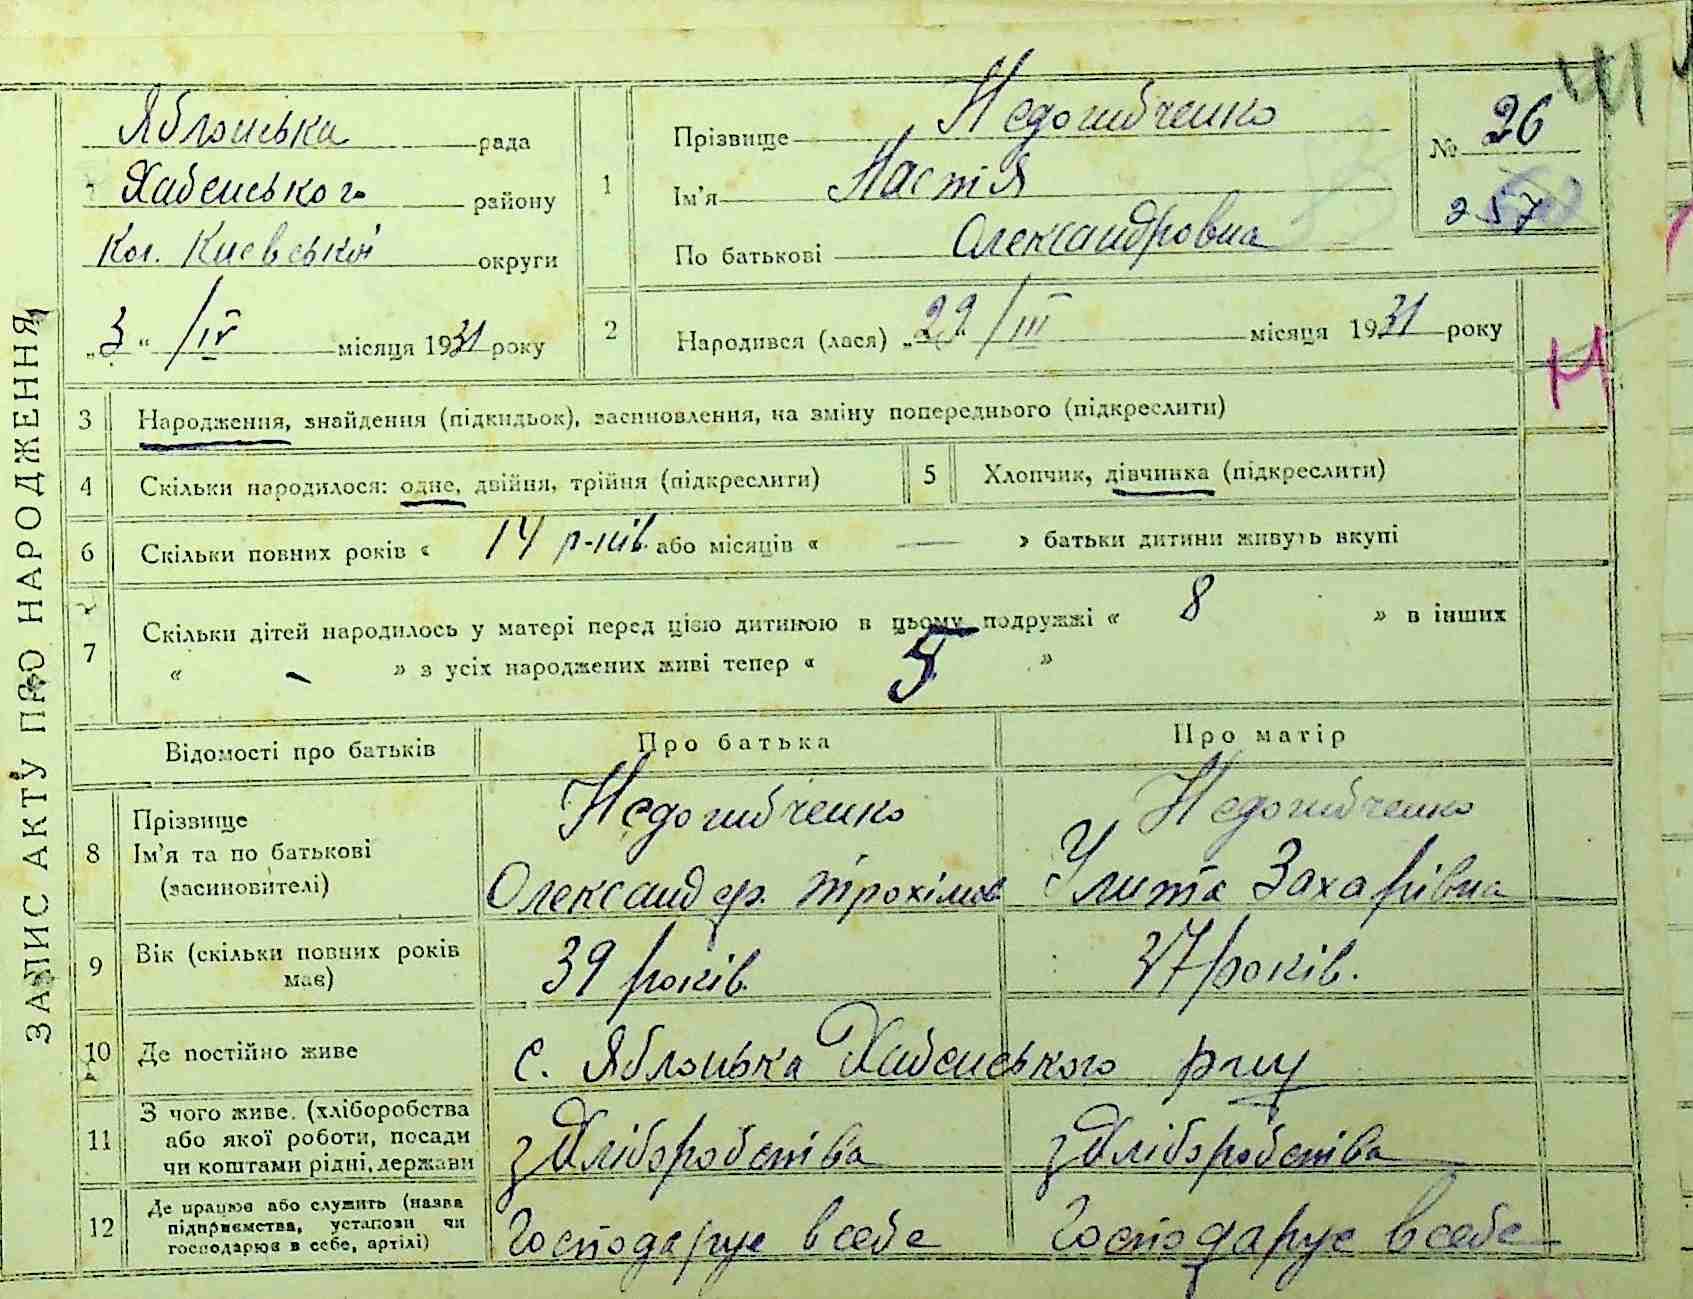 ЗАПИС АКТУ ПРО НАРОДЖЕННЯ
Яблонська рада
Хабенського району
Кол. Киевської округи
„3“ /IV місяця 1931 року
1
Прізвище Недогибченко
Ім'я Настя
По батькові Олександровна
№ 26
257
2 Народився (лася) „29 /III місяця 1931 року
3 Народження, знайдення (підкидьок), засиновлення, на зміну попереднього (підкреслити)
4 Скільки народилося: одне, двійня, трійня (підкреслити) 5 Хлопчик, дівчинка (підкреслити)
6 Скільки повних років « 14 р-ків або місяців « — » батьки дитини живуть вкупі
7 Скільки дітей народилось у матері перед цією дитиною в цьому подружжі « 8 » в інших
« - » з усіх народжених живі тепер « 5 »
Відомості про батьків Про батька Про матір
8 Прізвище
Ім'я та по батькові
(засиновителі)
Недогибченко
Олександр. Трохімов
Недогибченко
Улита Захарівна
9 Вік (скільки повних років
має)
39 років.
37 років.
10 Де постійно живе с. Яблонька Хабенського р-ну
11 З чого живе. (хліборобства
або якої роботи, посади
чи коштами рідні, держави
з Хліборобства
з Хліборобства
12 Де працює або служить (назва
підприємства, установи чи
господарює в себе, артілі)
Господарує в себе
Господарує в себе